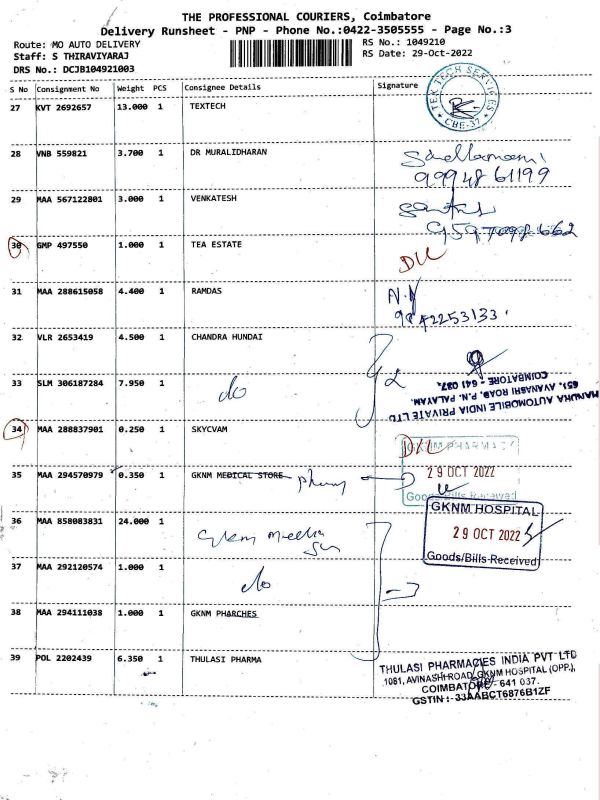 THE PROFESSIONAL COURIERS, Coimbatore
Delivery Runsheet - PNP - Phone No.:0422-3505555 - Page No.:3
Route: MO AUTO DELIVERY RS No.: 1049210
Staff: S THIRAVIYARAJ RS Date: 29-Oct-2022
DRS No.: DCJB104921003
S No Consignment No Weight PCS Consignee Details Signature
27 KVT 2692657 13.000 1 TEXTECH
TEK TECH SERVICES
CBE-37
28 VNB 559821 3.700 1 DR MURALIDHARAN
99948 61199
29 MAA 567122801 3.000 1 VENKATESH
30 GMP 497550 1.000 1 TEA ESTATE
31 MAA 288615058 4.400 1 RAMDAS
32 VLR 2653419 4.500 1 CHANDRA HUNDAI
33 SLM 306187284 7.950 1 do
AUTOMOBILE INDIA PRIVATE LTD
651, AVANASHI ROAD, P.N. PALAYAM,
COIMBATORE - 641 037.
34 MAA 288837901 0.250 1 SKYCVAM
GKNM PHARMACY
35 MAA 294570979 0.350 1 GKNM MEDICAL STORE
29 OCT 2022
Goods/Bills Received
GKNM HOSPITAL
36 MAA 858083831 24.000 1
29 OCT 2022
Goods/Bills Received
37 MAA 292120574 1.000 1 do
38 MAA 294111038 1.000 1 GKNM PHARCHES
39 POL 2202439 6.350 1 THULASI PHARMA
THULASI PHARMACIES INDIA PVT LTD
1081, AVINASHI ROAD, GKNM HOSPITAL (OPP.),
COIMBATORE - 641 037.
GSTIN : 33AABCT6876B1ZF